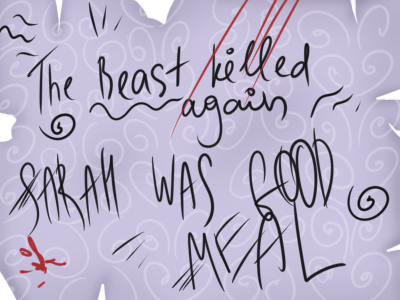 The Beast killed
again
SARAH WAS GOOD
MEAL